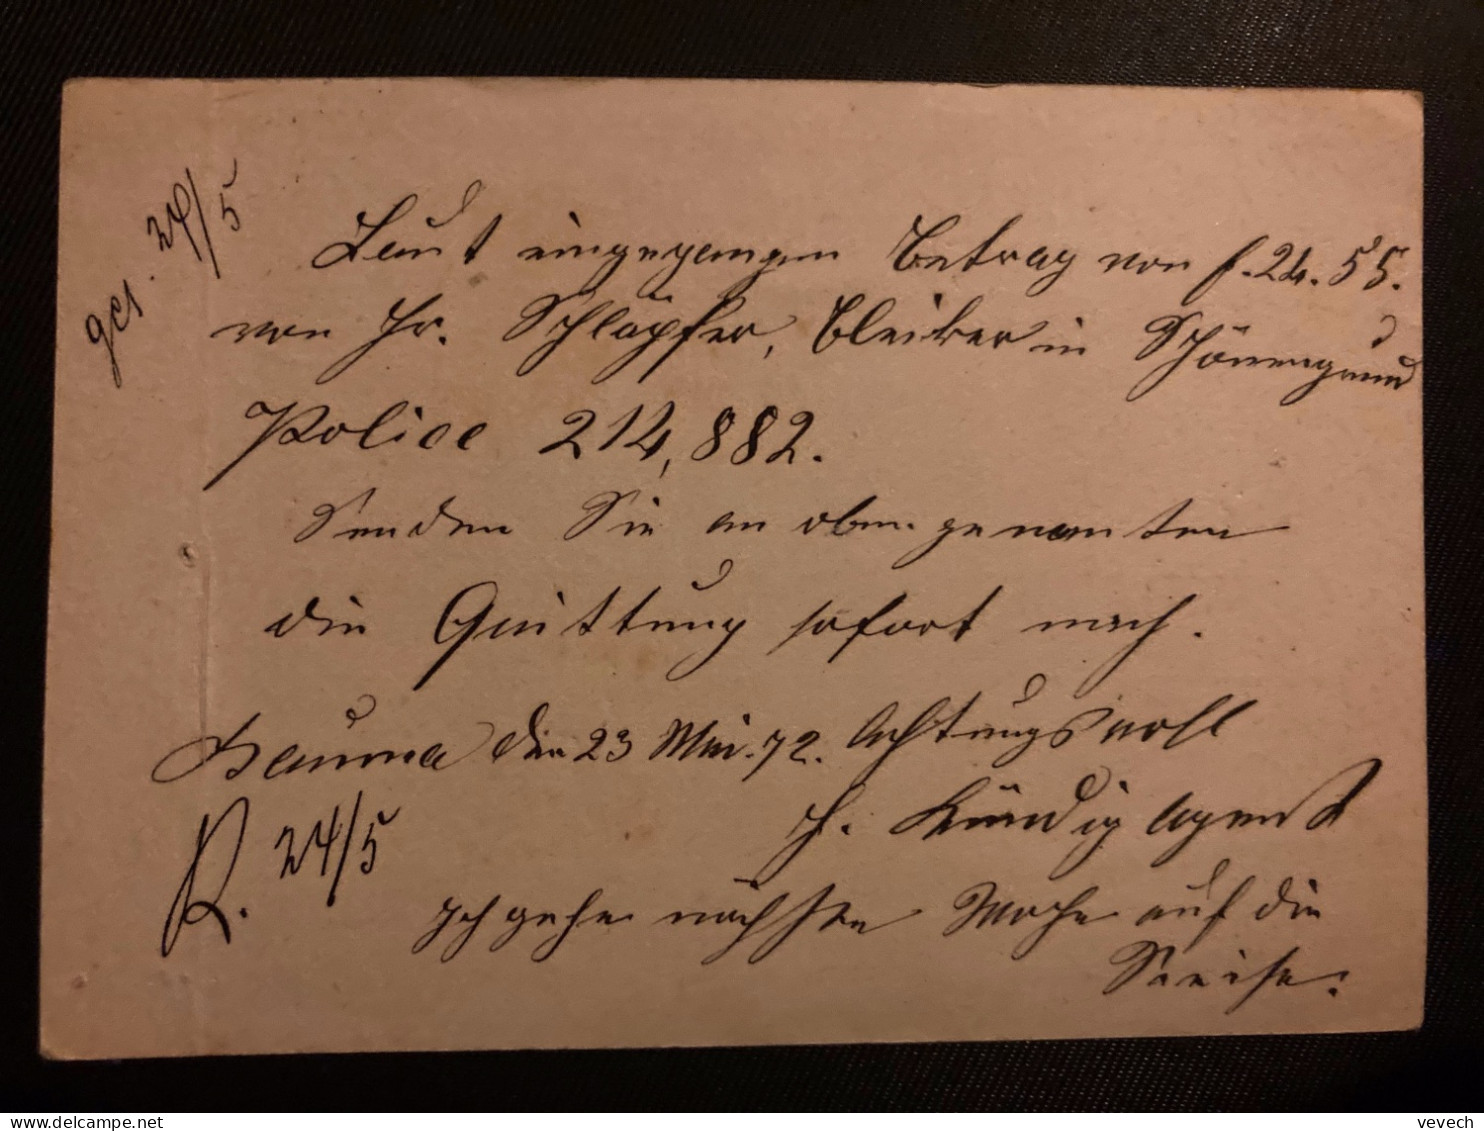 ges. 24/5
Laut eingegangen Betrag von f. 24. 55.
von Hr. Schläpfer, Bleiker in Schönengrund
Police 214,882.
Senden Sie an oben genanten
die Quittung sofort nach.
Bauma den 23 Mai. 72. Achtungsvoll
H. Kündig Agent
R. 24/5
Ich gehe nächsten Woche auf die
Reise.
vevech